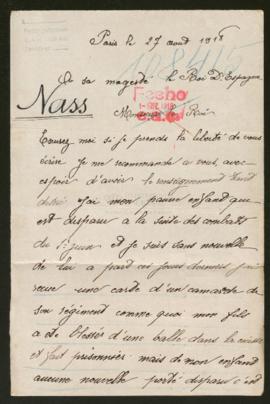 Paris le 27 aout 1918
108415
A sa magesté le Roi D'Espagne
Nass
Fecho
Monsieur le Roi
Excusez moi si je prends la liberté de vous
écrire Je me recommande a vous, avec
espoir d'avoir le renseignement tant
désiré j'ai mon pauvre enfant qui
est disparu a la suite des combats
du juin et je suis sans nouvelle
de lui a part ces jours derniers j'ai
recue une carte d'un camarade de
son régiment comme quoi mon fils
a ete blessés d'une balle dans la cuisse
et fait prisonnier mais de mon enfant
aucune nouvelle porté disparu c'est